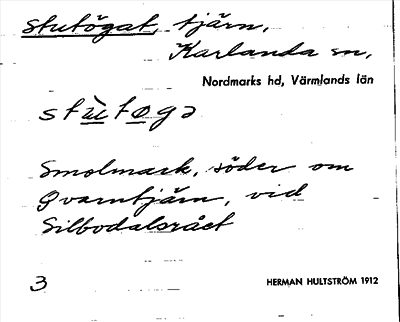 Stutögat, tjärn,
Karlanda sn,
Nordmarks hd, Värmlands län
stùtøgə
Smolmark, söder om
Qvarntjärn, vid
Silbodalsrået
3
HERMAN HULTSTRÖM 1912